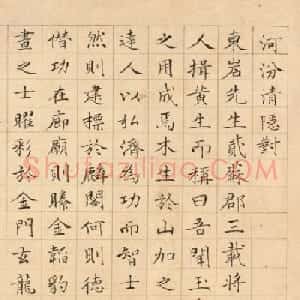 河汾清隱對
東岩先生貳裝郡三載將
人揖黃生而稱曰吾聞玉
之用成焉木生於山加之
達人以私濟為功而智士
然則建標於麟閣何則德
僭功在廊廟則勝金韜豹
畫之士曜彩於金門玄龍
Shufaziliao.COM